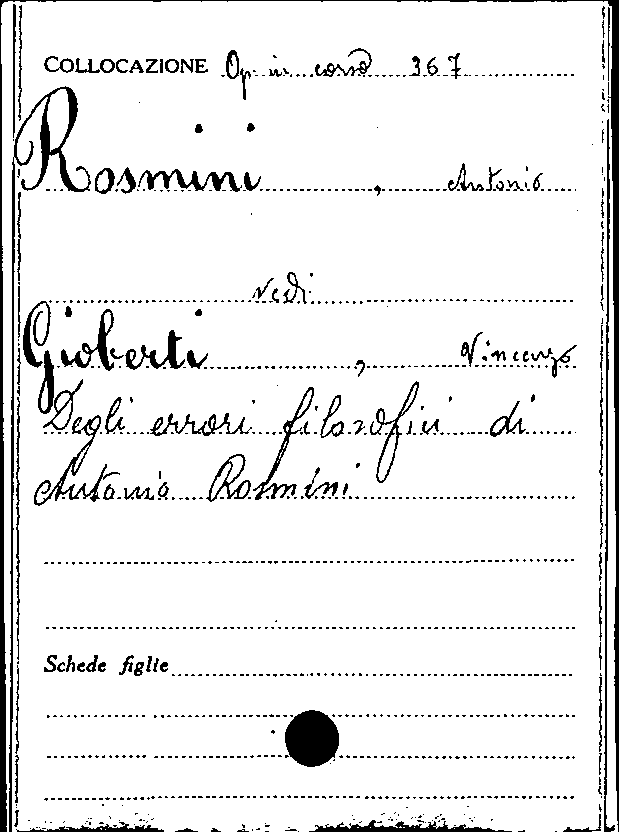 COLLOCAZIONE Op. in corso 367
Rosmini , Antonio
vedi
Gioberti , Vincenzo
Degli errori filosofici di
Antonio Rosmini
Schede figlie